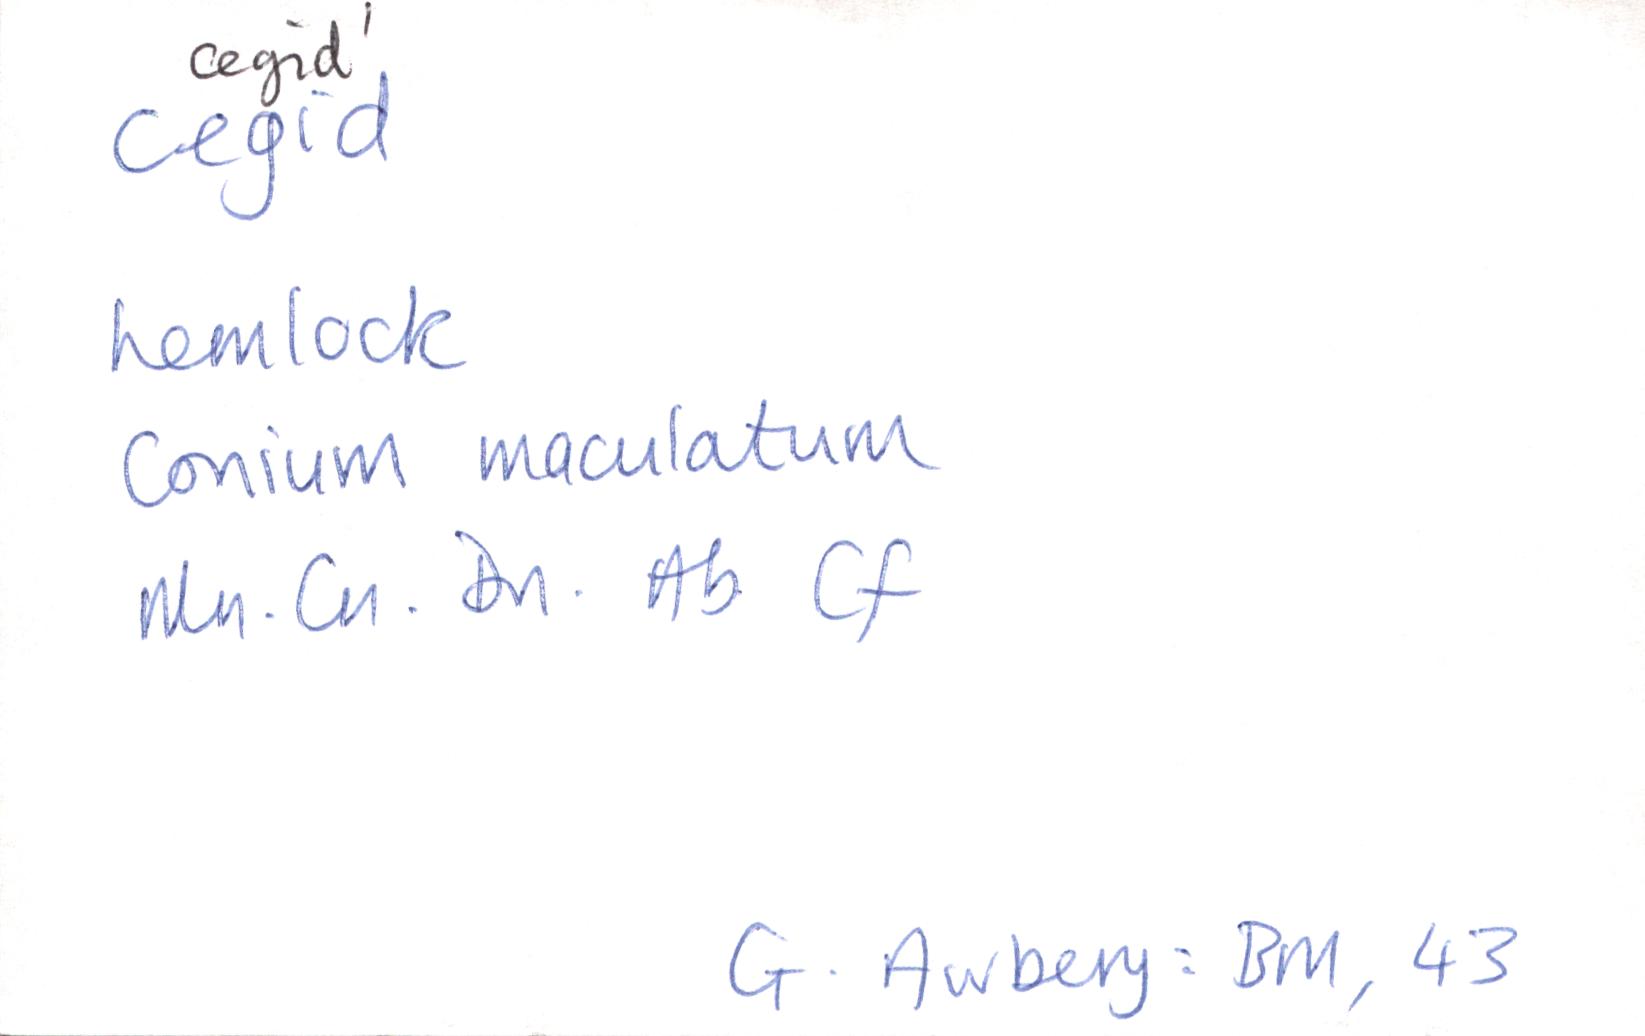 cegid'
cegid
hemlock
Conium maculatum
Mn. Cn. Dn. Ab Cf
G. Awbery: BM, 43